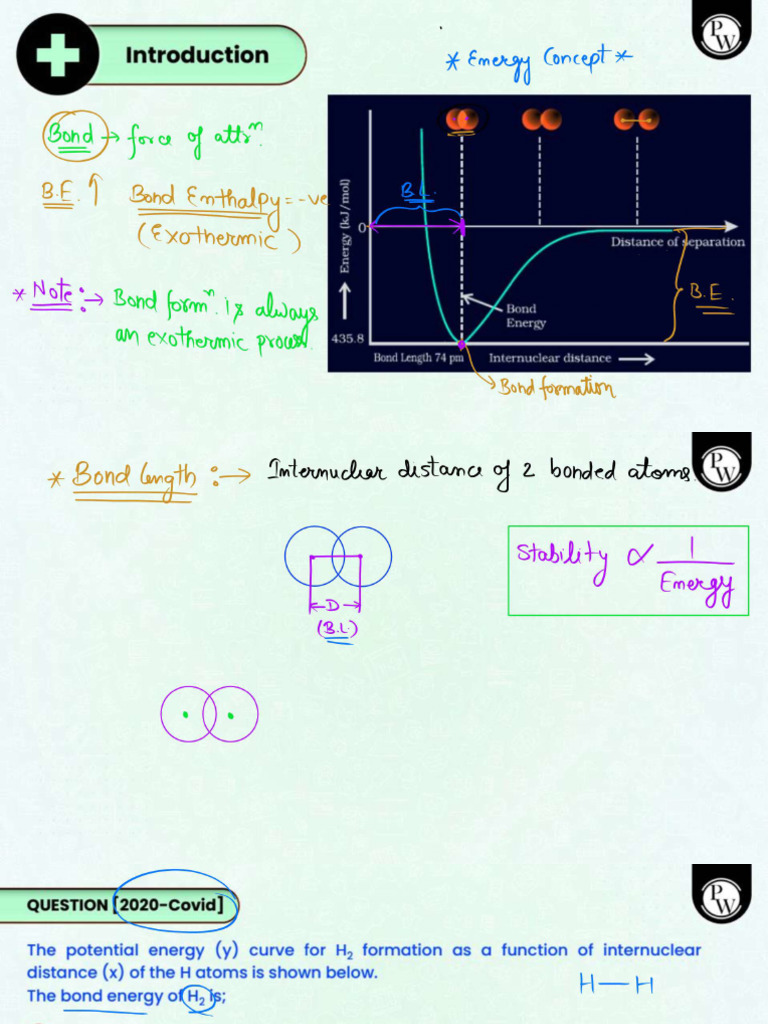 Introduction
PW
* Energy Concept *
Bond → force of attrⁿ.
B.E. ↑ Bond Enthalpy = -ve
(Exothermic)
* Note :→ Bond formⁿ. is always
an exothermic process.
B.L.
Energy (kJ/mol)
0
Distance of separation
B.E.
Bond
Energy
435.8
Bond Length 74 pm
Internuclear distance
Bond formation
PW
* Bond length :→ Internuclear distance of 2 bonded atoms.
Stability ∝ 1
Energy
D
(B.L.)
PW
QUESTION [2020-Covid]
The potential energy (y) curve for H₂ formation as a function of internuclear
distance (x) of the H atoms is shown below.
H—H
The bond energy of H₂ is;